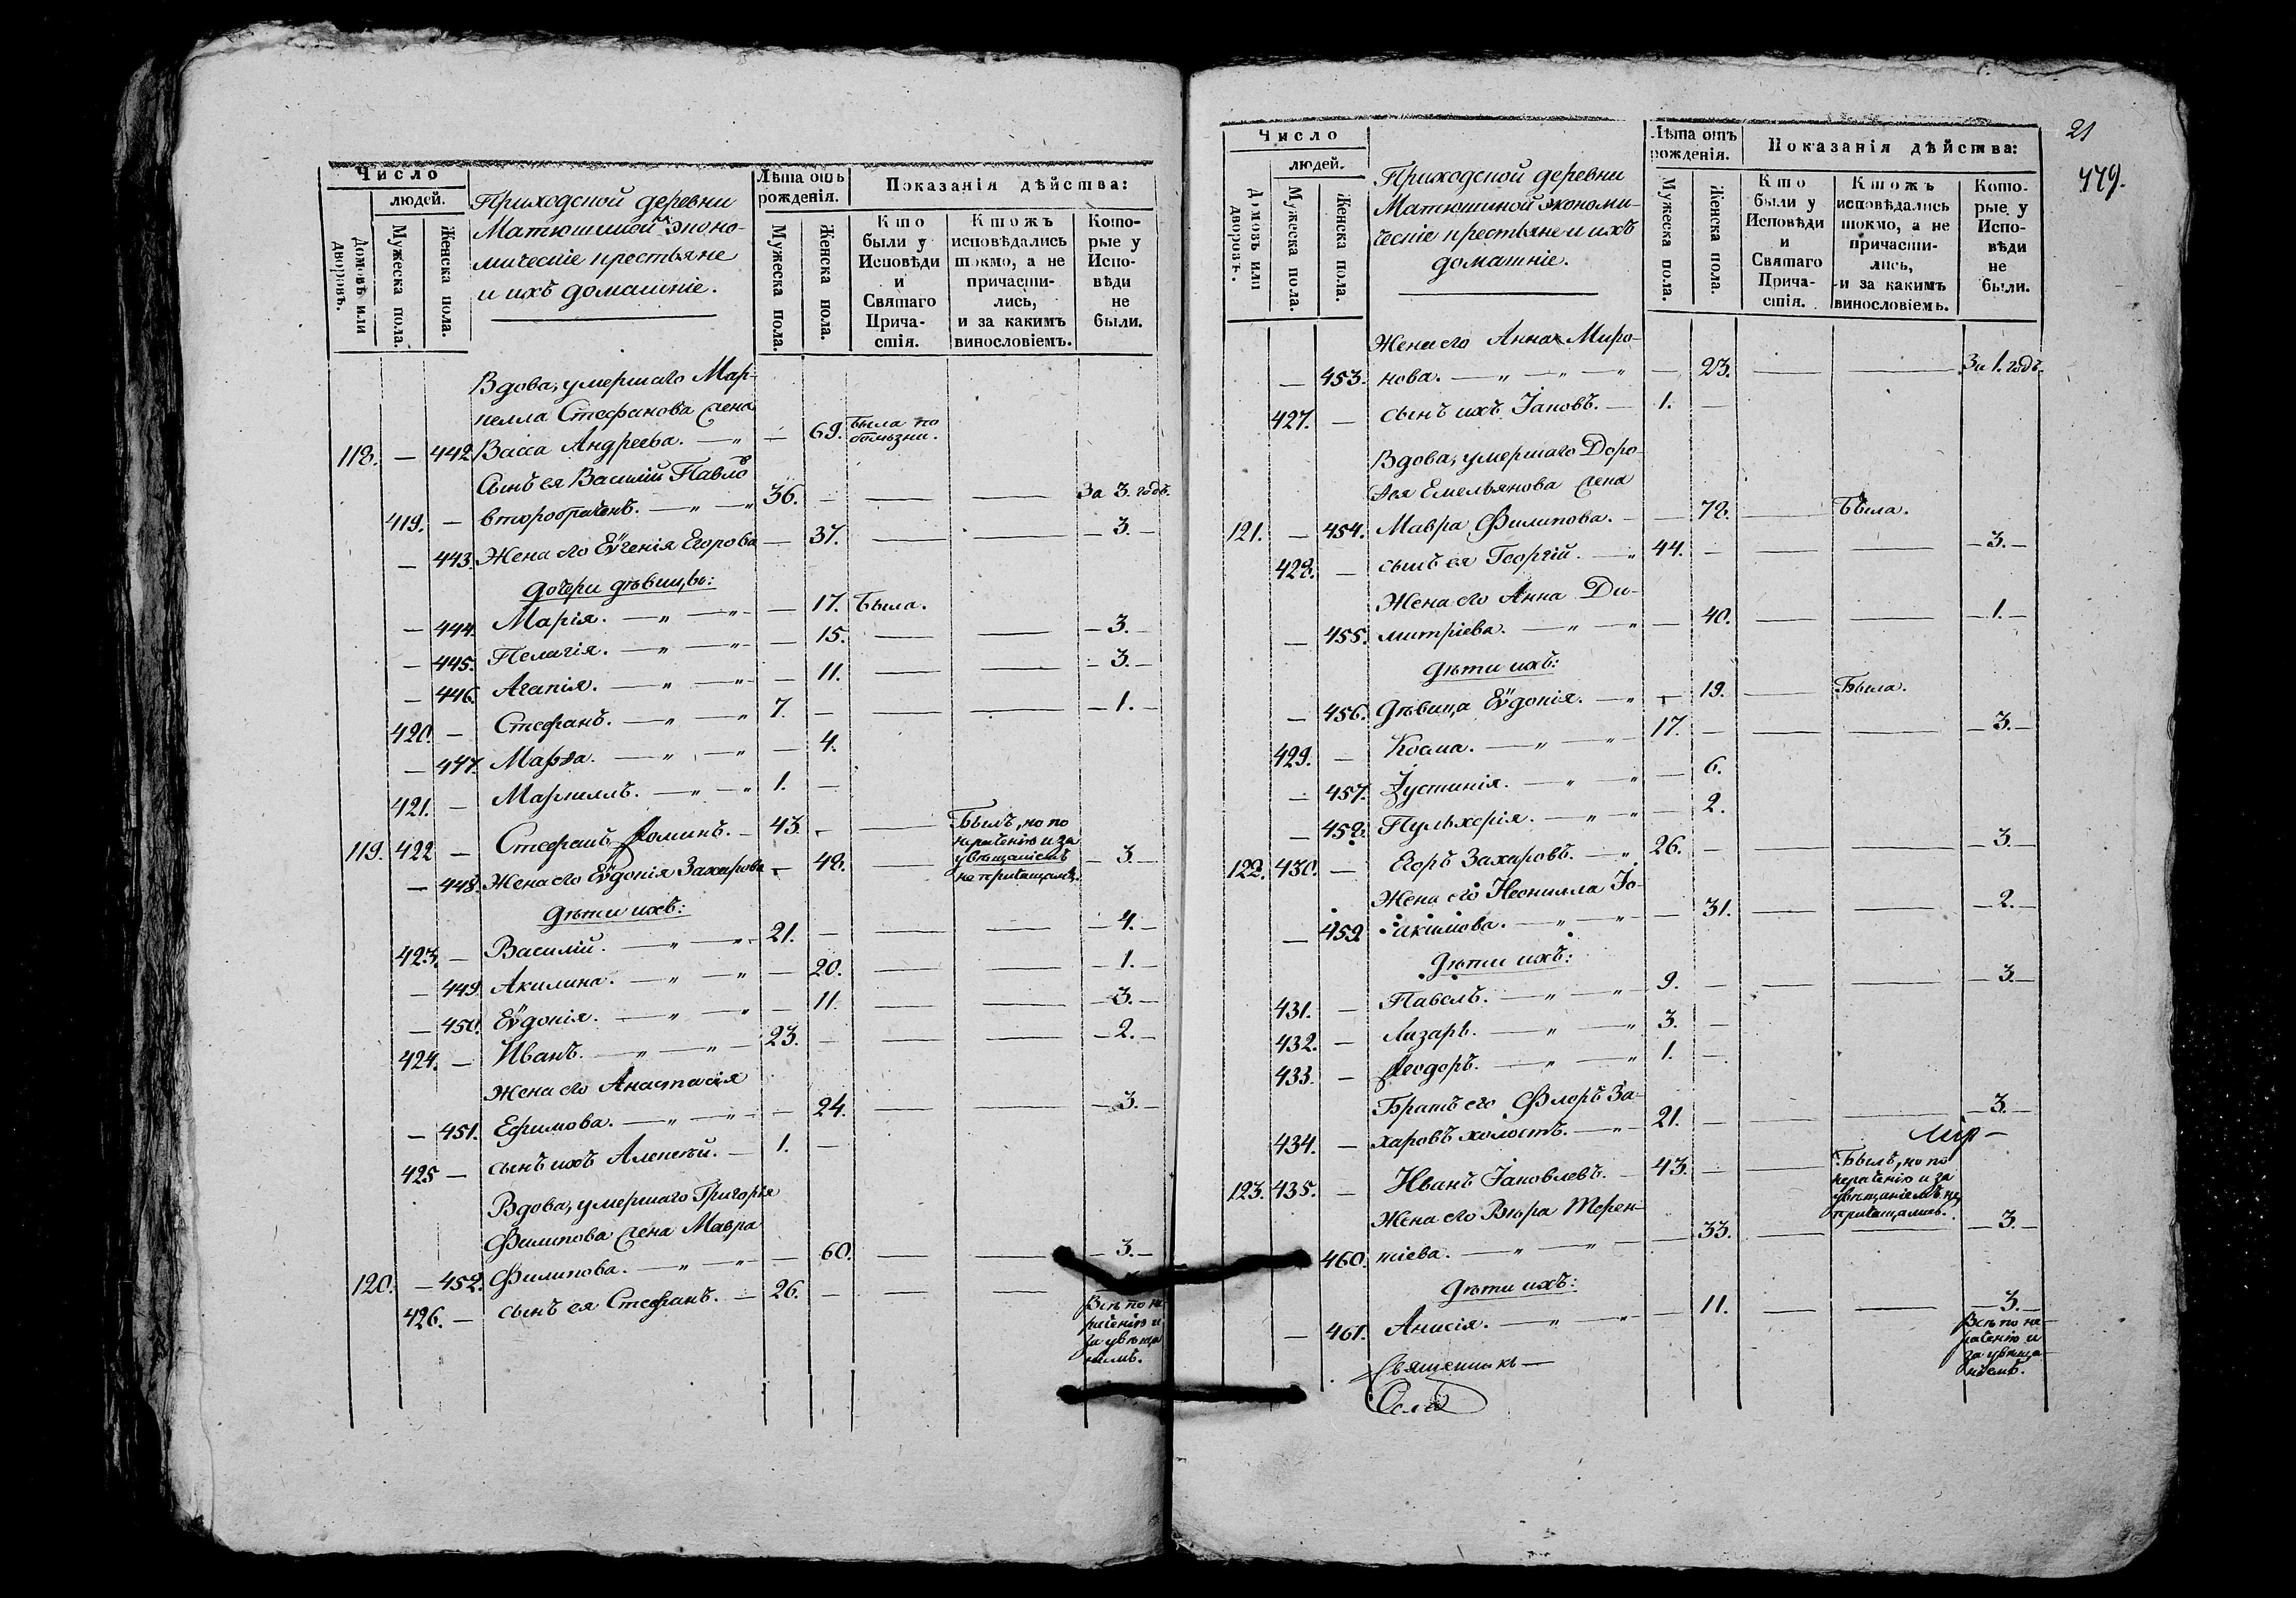 Число
людей.
Домовъ или дворовъ.
Мужеска пола.
Женска пола.
Приходской деревни
Матюшиной эконо-
мическіе крестьяне
и ихъ домашніе.
Лѣта отъ рожденія.
Мужеска пола.
Женска пола.
Показанія дѣйства:
Кто были у Исповѣди и Святаго Прича-стія.
Ктожъ исповѣдались токмо, а не причасти-лись, и за какимъ винословіемъ.
Кото-рые у Испо-вѣди не были.
Вдова, умершаго Мар-
келла Стефанова жена
118. — 442. Васса Андреева. — „ — 69. была по болѣзни.
Сынъ ея Василій Павловъ
419. — второбраченъ. — „ — „ 36. — — — За 3. годъ.
— 443. Жена его Еѵгенія Егорова — 37. — — — 3. —
дочери дѣвицы:
— 444. Марія. — „ — „ — 17. Была.
— 445. Пелагія. — „ — „ — 15. — — — 3. —
— 446. Агапія. — „ — „ — 11. — — — 3. —
420. — Стефанъ. — „ — „ 7. — — — — 1. —
— 447. Марѳа. — „ — „ — 4.
421. — Маркеллъ. — „ — „ 1. —
119. 422 — Стефанъ Ѳоминъ. — 43. — — Былъ, но по нераченію и за увѣщаніемъ не причащался.
— 448. Жена его Еѵдокія Захарова — 48. — 3. —
дѣти ихъ:
423. — Василій. — „ — „ 21. — — — — 4. —
— 449. Акилина. — „ — „ — 20. — — — 1. —
— 450. Еѵдокія. — „ — „ — 11. — — — 3. —
424. — Иванъ. — „ — „ — 23. — — — — 2. —
Жена его Анастасія
— 451. Ефимова. — „ — „ — 24. — — — 3. —
425 — сынъ ихъ Алексѣй. — 1. —
Вдова, умершаго Григорія
Филипова жена Мавра
120. — 452. Филипова. — „ — „ — 60. — — — 3. —
426. — сынъ ея Стефанъ. — 26. — — —
Всѣ по не-
раченію и
за увѣща
ніемъ.
21
479.
Число
людей.
Домовъ или дворовъ.
Мужеска пола.
Женска пола.
Приходской деревни
Матюшиной экономи-
ческіе крестьяне и ихъ
домашніе.
Лѣта отъ рожденія.
Мужеска пола.
Женска пола.
Показанія дѣйства:
Кто были у Исповѣди и Святаго Прича-стія.
Ктожъ исповѣдались токмо, а не причасти-лись, и за какимъ винословіемъ.
Кото-рые у Испо-вѣди не были.
Жена его Анна Миро-
— 453. нова. — „ — „ — „ — 23. — — За 1. годъ.
427. — сынъ ихъ Іаковъ. — 1. —
Вдова, умершаго Доро-
ѳея Емельянова жена
121. — 454. Мавра Филипова. — — 78. — Была.
428. — сынъ ея Георгій. — „ 44. — — — — 3. —
Жена его Анна Ди-
— 455. митріева. — „ — „ — 40. — — — 1. —
дѣти ихъ:
— 456. Дѣвица Еѵдокія. — „ — 19. — Была.
429. — Косма. — „ — „ 17. — — — — 3. —
— 457. Іустинія. — „ — „ — 6.
— 458. Пульхерія. — „ — „ — 2.
122. 430. — Егоръ Захаровъ. — „ 26. — — — — 3. —
Жена его Неонилла Іо-
— 459 акимова. — „ — „ — 31. — — — 2. —
дѣти ихъ:
431. — Павелъ. — „ — „ 9. — — — — 3. —
432. — Лазарь. — „ — „ 3. —
433. — Ѳеодоръ. — „ — „ 1. —
Братъ его Флоръ За-
434. — харовъ холостъ. — „ — 21. — — — 3. —
123. 435. — Иванъ Іаковлевъ. — 43. — — Былъ, но по нераченію и за увѣщаніемъ не причащался.
Жена его Вѣра Терен-
460. тіева. — „ — „ — — 33. — — 3. —
дѣти ихъ:
— 461. Анисія. — „ — „ — 11. — — — 3. —
Всѣ по не-
раченію и
за увѣща-
ніемъ.
Священникъ —